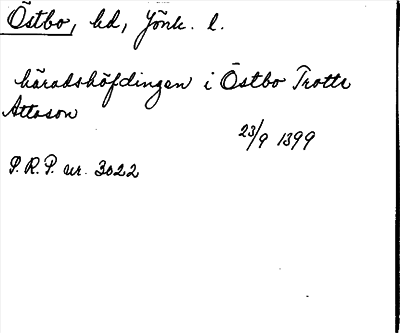 Östbo, hd, Jönk. l.
häradshöfdingen i Östbo Trotte
Attoson
23/9 1399
P.R.P. nr. 3022